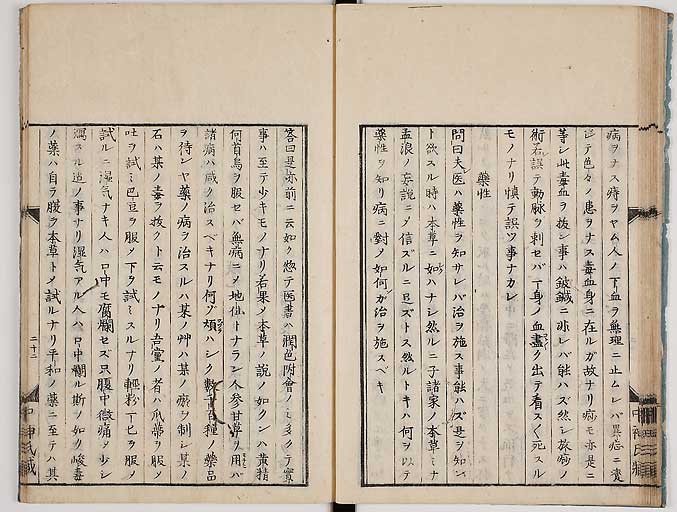 病ヲナス痔ヲヤム人ノ下血ヲ無理ニ止ムレバ異症ニ変
シテ色々ノ患ヲナス毒血身ニ在ルガ故ナリ痴モ亦是ニ
等シ此毒血ヲ抜シ事ハ鈹鍼ニ非レバ能ハズ然シ旅
術若誤テ動脉ヲ刺セバ一身ノ血盡ク出テ看ス〱死スル
モノナリ慎テ誤ツ事ナカレ
藥性
問曰夫医ハ藥性ヲ知サレバ治ヲ施ス事能ハズ是ヲ知ン
ト欲スル時ハ本草ニ如ハナシ然ルニ子諸家ノ本草ミナ
孟浪ノ妄説ニメ信ズルニ足ズトス然ルトキハ何ヲ以テ
藥性ヲ知リ病ニ對メ如何ガ治ヲ施スベキ
答曰是亦前ニ云如ク惣テ医書ハ潤色附會ノミ多クテ實
事ハ至テ少キモノナリ若果メ本草ノ説ノ如クンハ黄精
何首烏ヲ服セバ無病ニメ地仙トナラン人参甘草ヲ用バ
諸病ハ咸ク治スベキナリ何ゾ煩ハシク數千百種ノ藥品
ヲ待ンヤ藥ノ病ヲ治スルハ某ノ艸ハ某ノ瘀ヲ制シ某ノ
石ハ某ノ毒ヲ抜クト云モノナリ吾黨ノ者ハ瓜蒂ヲ服メ
吐ヲ試ミ巴豆ヲ服メ下ヲ試ミスルナリ輕粉丁七ヲ服メ
試ルニ湿気ナキ人ハ口中モ腐爛セズ只腹中微痛メ少シ
瀉スル迠ノ事ナリ湿気アル人ハ口中爛ル斯ノ如ク峻毒
ノ藥ハ自ラ腹ヲ本草トメ試ルナリ平和ノ藥ニ至テハ其
二十二
中神氏蔵